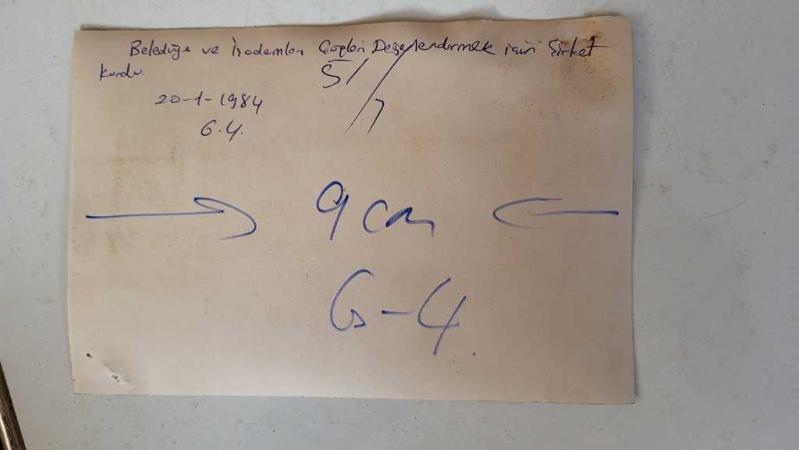 Belediye ve İşadamları Çöpleri Değerlendirmek için Şirket
kurdu.
51/7
20-1-1984
G.4.
9 cm
G-4